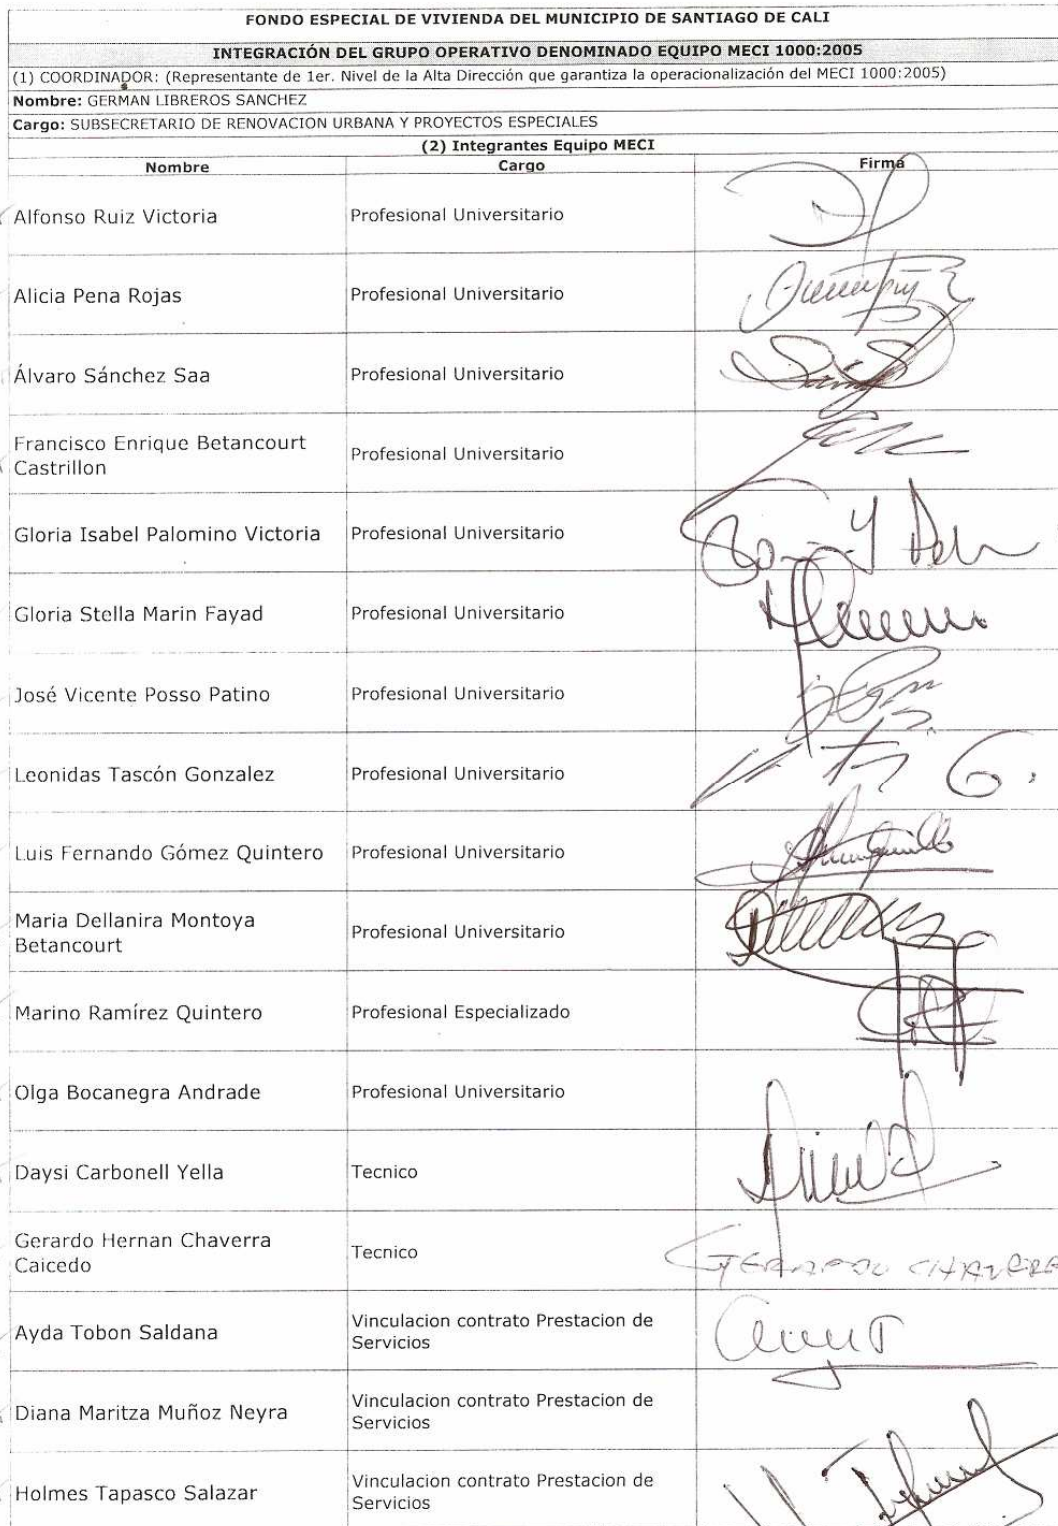 FONDO ESPECIAL DE VIVIENDA DEL MUNICIPIO DE SANTIAGO DE CALI
INTEGRACIÓN DEL GRUPO OPERATIVO DENOMINADO EQUIPO MECI 1000:2005
(1) COORDINADOR: (Representante de 1er. Nivel de la Alta Dirección que garantiza la operacionalización del MECI 1000:2005)
Nombre: GERMAN LIBREROS SANCHEZ
Cargo: SUBSECRETARIO DE RENOVACION URBANA Y PROYECTOS ESPECIALES
(2) Integrantes Equipo MECI
Nombre Cargo Firma
Alfonso Ruiz Victoria Profesional Universitario
Alicia Pena Rojas Profesional Universitario
Álvaro Sánchez Saa Profesional Universitario
Francisco Enrique Betancourt
Castrillon Profesional Universitario
Gloria Isabel Palomino Victoria Profesional Universitario
Gloria Stella Marin Fayad Profesional Universitario
José Vicente Posso Patino Profesional Universitario
Leonidas Tascón Gonzalez Profesional Universitario
Luis Fernando Gómez Quintero Profesional Universitario
Maria Dellanira Montoya
Betancourt Profesional Universitario
Marino Ramírez Quintero Profesional Especializado
Olga Bocanegra Andrade Profesional Universitario
Daysi Carbonell Yella Tecnico
Gerardo Hernan Chaverra
Caicedo Tecnico
GERARDO CHAVERRA
Ayda Tobon Saldana Vinculacion contrato Prestacion de
Servicios
Diana Maritza Muñoz Neyra Vinculacion contrato Prestacion de
Servicios
Holmes Tapasco Salazar Vinculacion contrato Prestacion de
Servicios